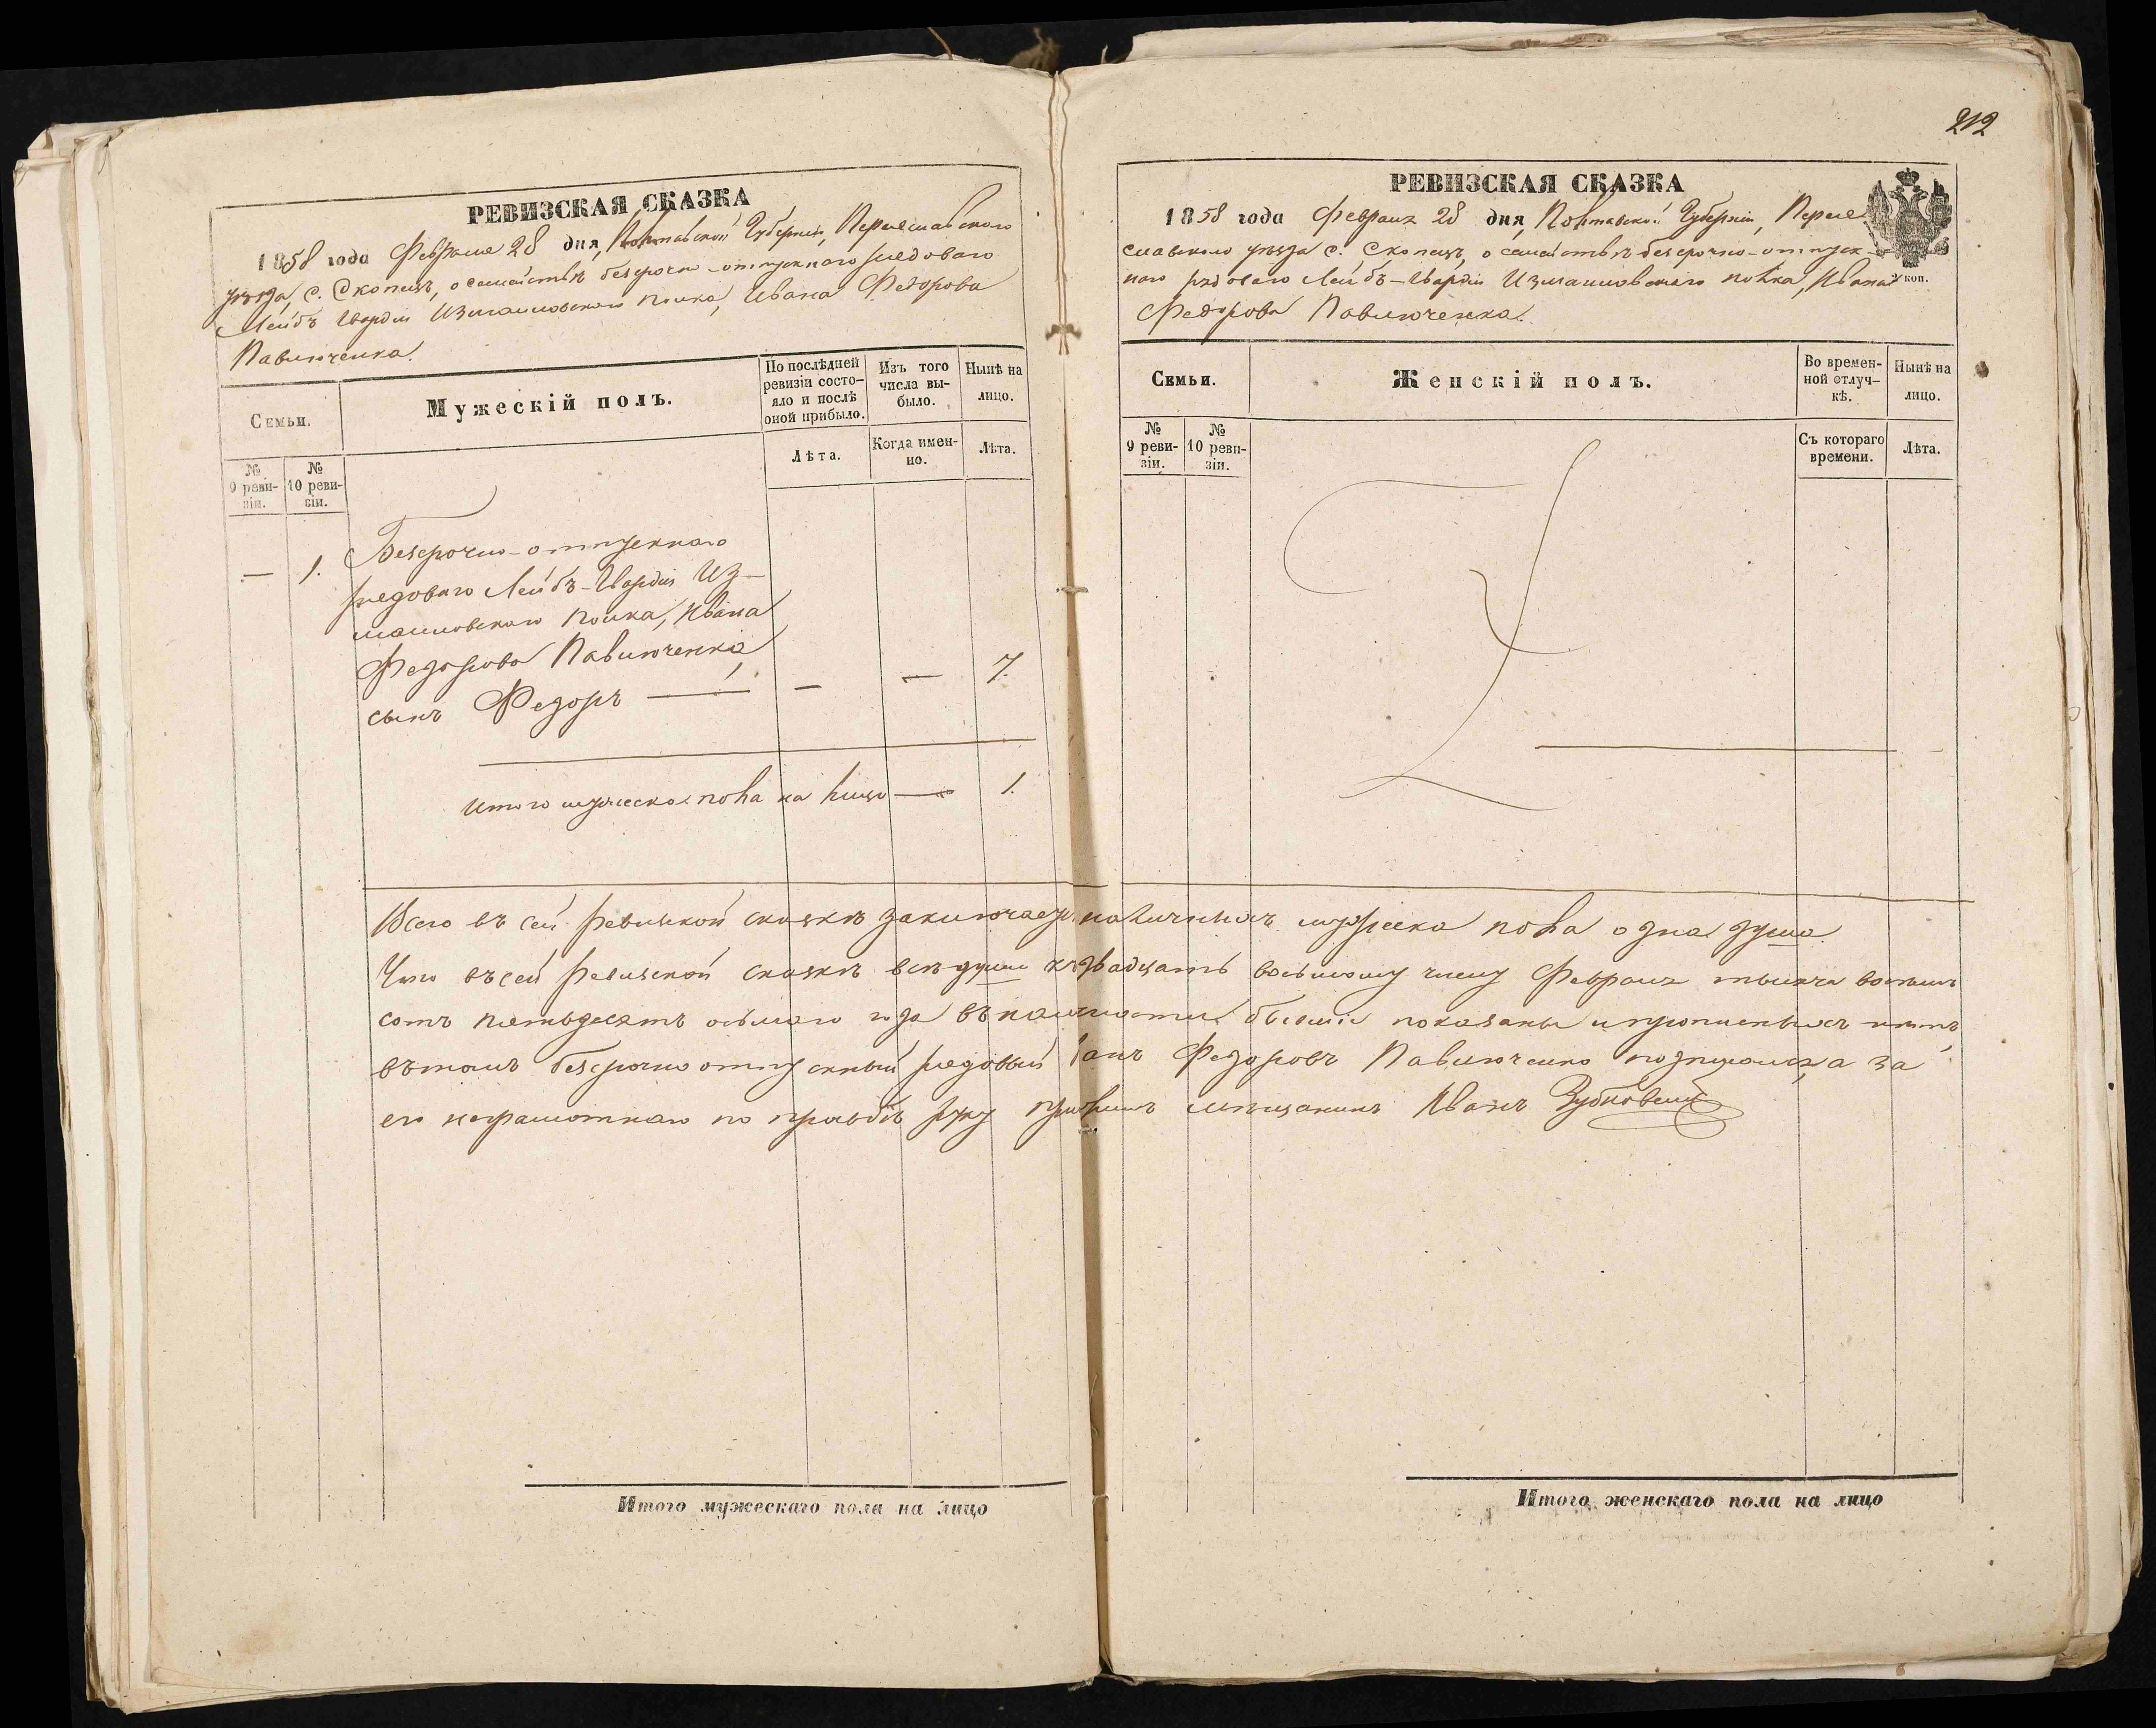 РЕВИЗСКАЯ СКАЗКА
1858 года Февраля 28 дня, Полтавской Губернии, Переяславскаго
уѣзда, с. Скопецъ, о семействѣ безсрочно-отпускнаго рядоваго
Лейбъ Гвардіи Измаиловскаго полка, Ивана Федорова
Павлюченка.
Семьи.
Мужескій полъ.
По послѣдней ревизіи состо-яло и послѣ оной прибыло.
Изъ того числа вы-было.
Нынѣ на лицо.
№ 9 реви-зіи.
№ 10 реви-зіи.
Лѣта.
Когда имен-но.
Лѣта.
— 1. Безсрочно-отпускнаго
рядоваго Лейбъ-Гвардіи Из-
маиловскаго полка, Ивана
Федорова Павлюченка,
сынъ Федоръ — — — 7.
Итого мужеска пола на лицо — 1.
212
РЕВИЗСКАЯ СКАЗКА
1858 года Февраля 28 дня, Полтавской Губерніи, Перея-
славскаго уѣзда с. Скопецъ, о семействѣ безсрочно-отпуск-
наго рядоваго Лейбъ-Гвардіи Измаиловскаго полка, Ивана
коп.
Федорова Павлюченка.
Семьи.
Женскій полъ.
Во времен-ной отлуч-кѣ.
Нынѣ на лицо.
№ 9 реви-зіи.
№ 10 реви-зіи.
Съ котораго времени.
Лѣта.
Всего въ сей ревизской сказкѣ заключается наличныхъ мужеска пола одна душа.
Что въ сей ревизской сказкѣ всѣ души къ двадцать восьмому числу Февраля тысяча восемь
сотъ пятьдесятъ осьмаго года въ наличности бывшіе показаны и прописныхъ нѣтъ,
въ томъ безсрочноотпускный рядовый Иванъ Федоровъ Павлюченко подписался, а за
его неграмотнаго по прозьбѣ руку приложилъ мѣщанинъ Иванъ
Итого мужескаго пола на лицо
Итого женскаго пола на лицо